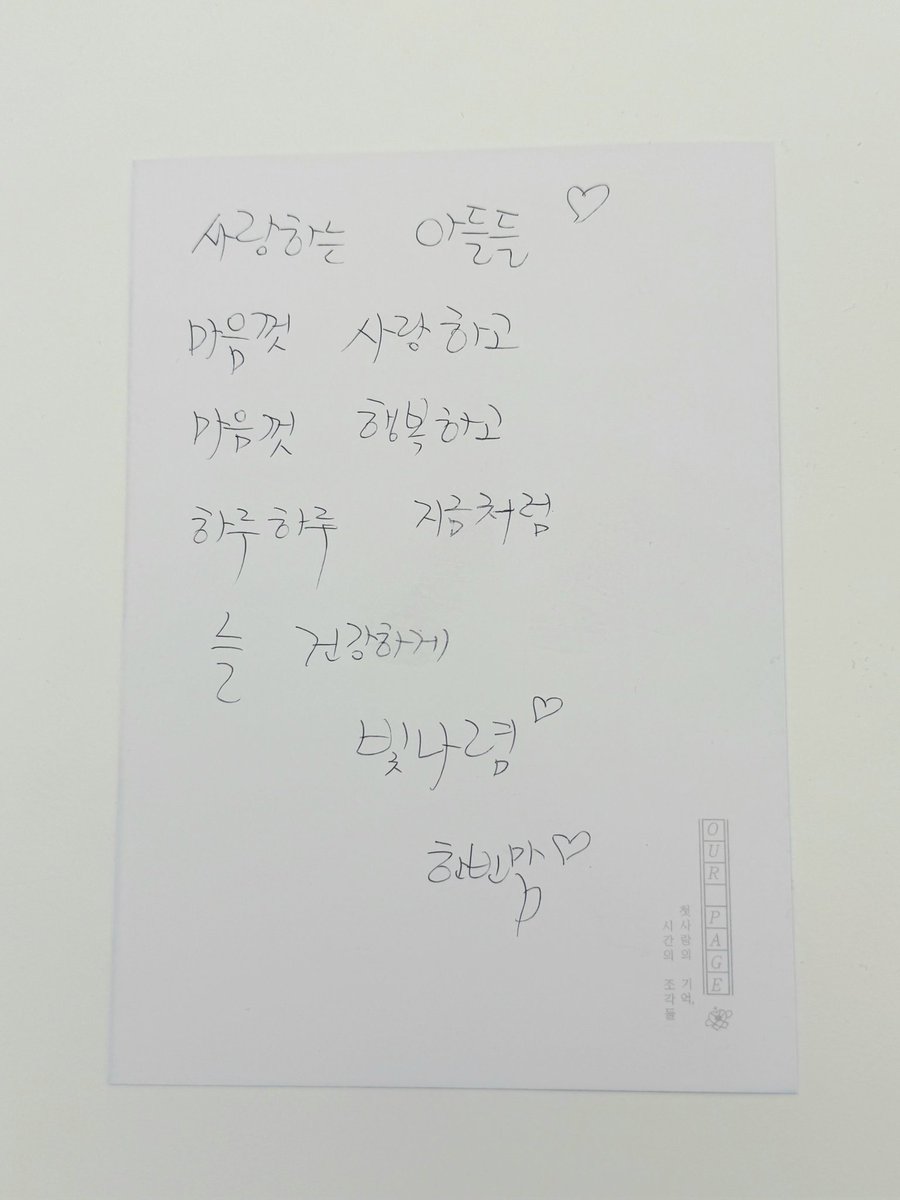 사랑하는 아들들♡
마음껏 사랑하고
마음껏 행복하고
하루하루 지금처럼
늘 건강하게
빛나렴♡
한빈맘♡
OUR PAGE
첫사랑의 기억,
시간의 조각들